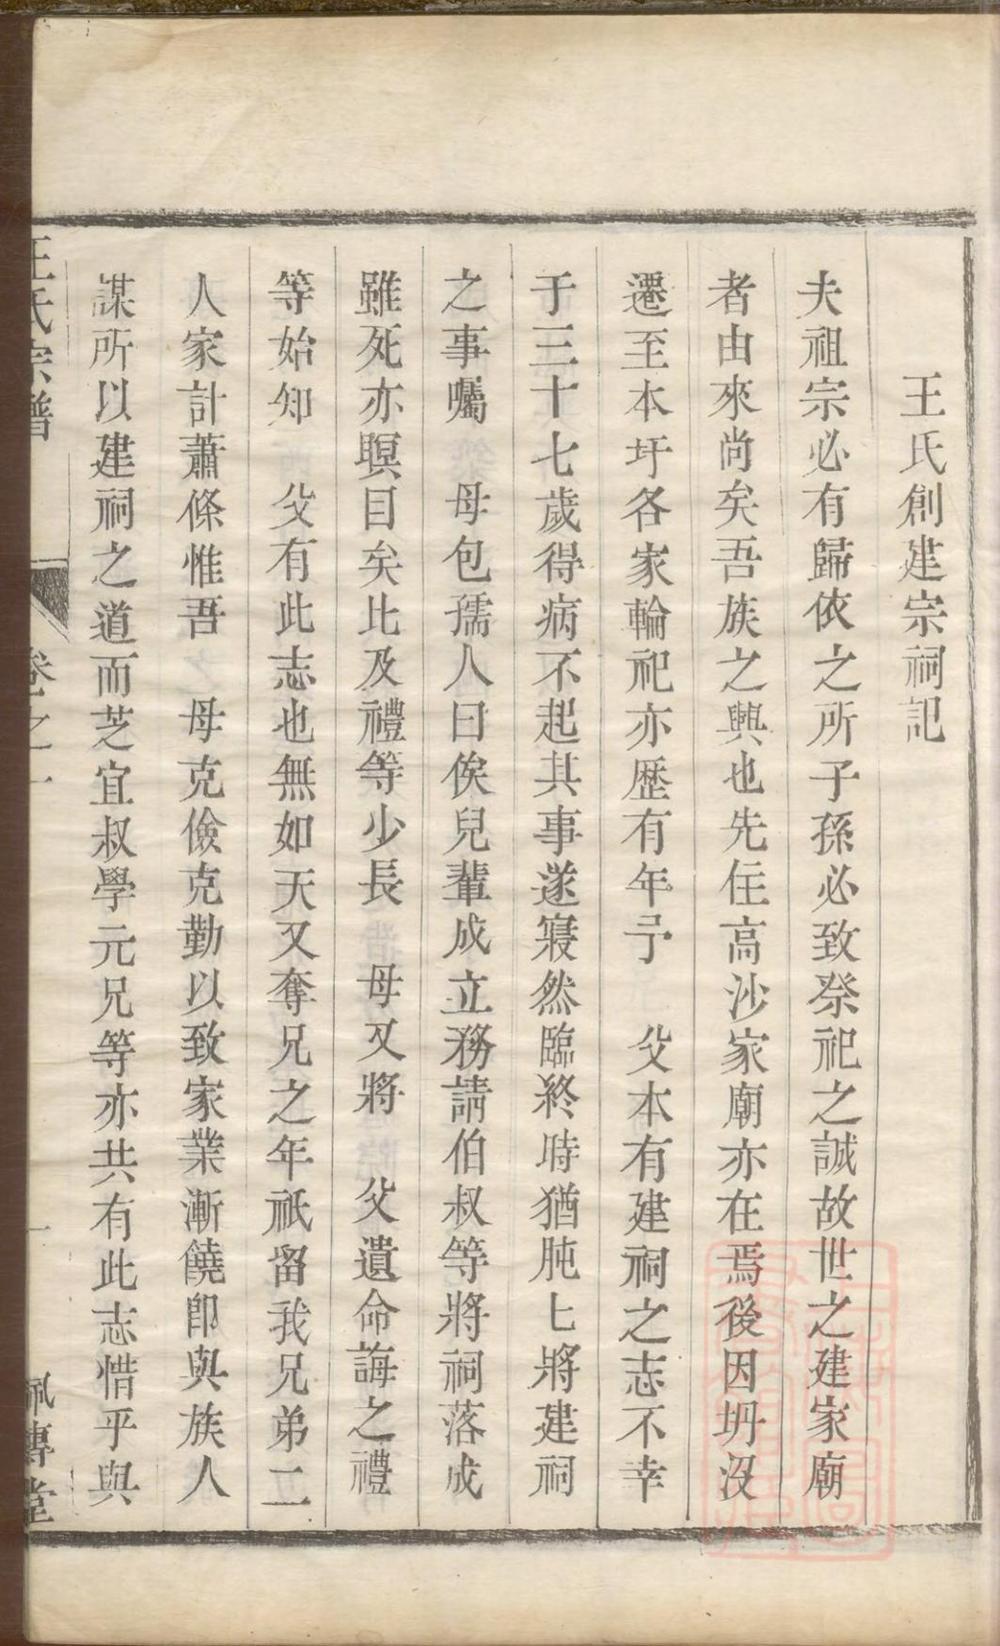 王氏創建宗祠記
夫祖宗必有歸依之所子孫必致祭祀之誠故世之建家廟
者由來尚矣吾族之興也先住高沙家廟亦在焉後因坍没
遷至本圩各家輪祀亦歷有年予　父本有建祠之志不幸
于三十七歲得病不起其事遂寢然臨終時猶肫七將建祠
之事囑　母包孺人曰俟兒輩成立務請伯叔等將祠落成
雖死亦瞑目矣比及禮等少長　母又將　父遺命誨之禮
等始知　父有此志也無如天又奪兄之年祇留我兄弟二
人家計蕭條惟吾　母克儉克勤以致家業漸饒卽與族人
謀所以建祠之道而芝宜叔學元兄等亦共有此志惜乎與
王氏宗譜　卷之一　一　佩傳堂